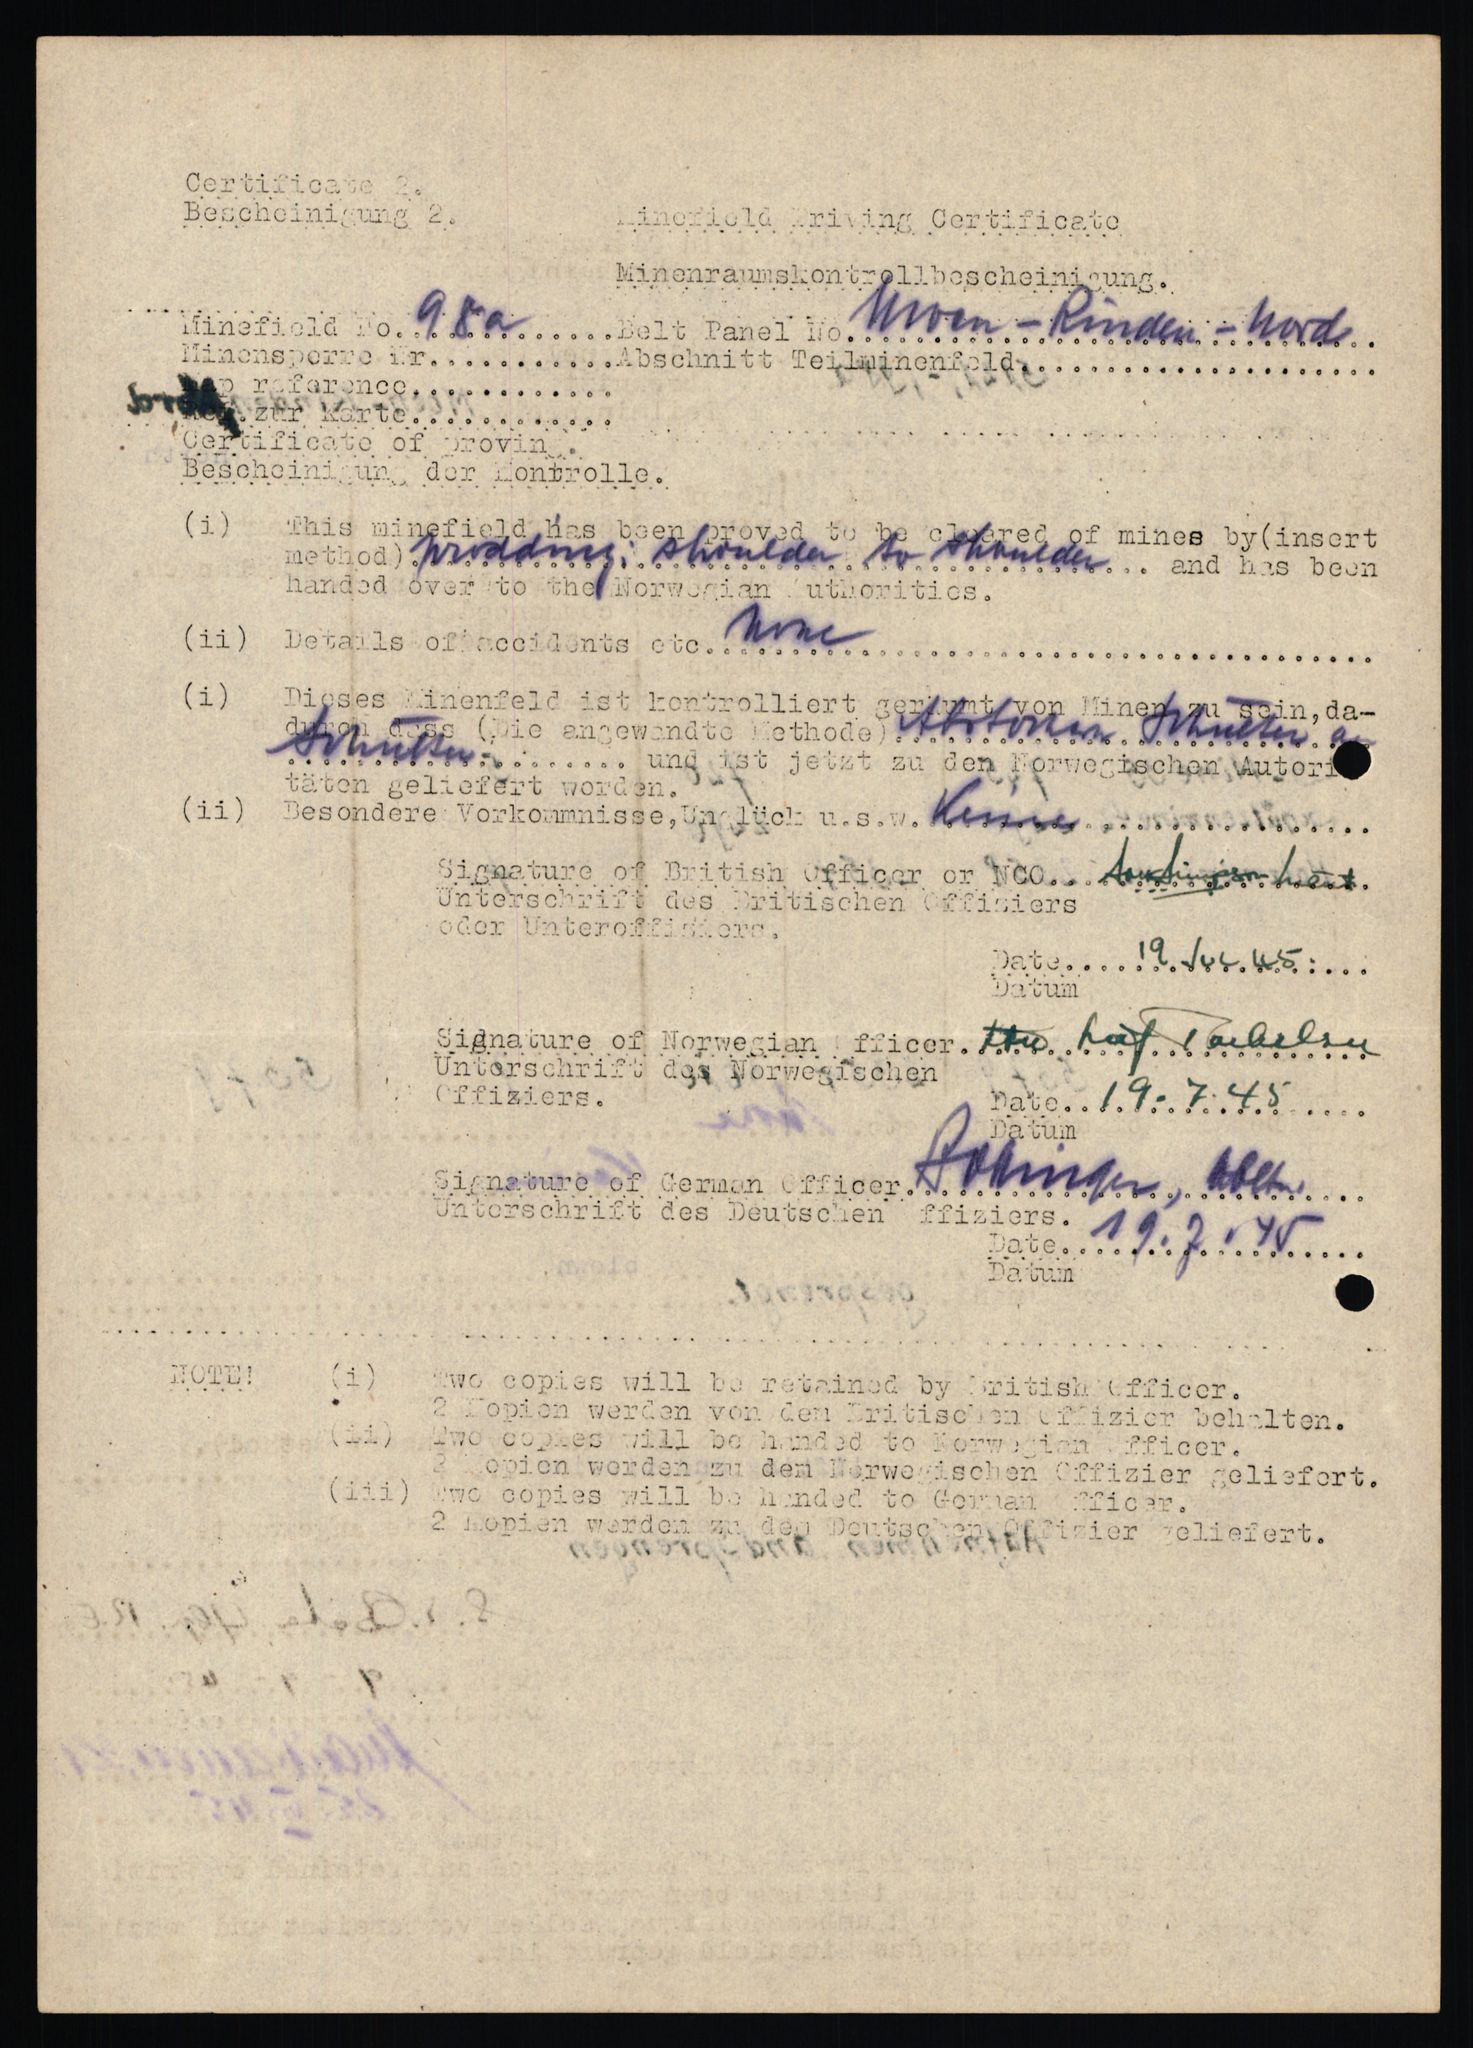 Certificate 2.
Bescheinigung 2.
Minefield Driving Certificate
Minenraumskontrollbescheinigung.
Minefield No. 98a Belt Panel No. Moen - Rinden - Nord
Minensperre Nr............Abschnitt Teilminenfeld......................
Map reference............
Bez. zur Karte............
Certificate of proving.
Bescheinigung der Kontrolle.
(i) This minefield has been proved to be cleared of mines by(insert
method) prodding; shoulder to shoulder ... and has been
handed over to the Norwegian Authorities.
(ii) Details of accidents etc. None
(i) Dieses Minenfeld ist kontrolliert geräumt von Minen zu sein, da-
durch dass (Die angewandte Methode) Abstochen Schulter an
Schulter ........ und ist jetzt zu den Norwegischen Autori
täten geliefert worden.
(ii) Besondere Vorkommnisse, Unglück u.s.w. Keine
Signature of British Officer or NCO..
Unterschrift des Britischen Offiziers
oder Unteroffiziers.
Date..... 19 Jul 45
Datum
Signature of Norwegian Officer.
Unterschrift des Norwegischen
Offiziers.
Date.. 19.7.45
Datum
Signature of German Officer.
Unterschrift des Deutschen Offiziers.
Date.. 19.7.45
Datum
NOTE! (i) Two copies will be retained by British Officer.
2 Kopien werden von den Britischen Offizier behalten.
(ii) Two copies will be handed to Norwegian Officer.
2 Kopien werden zu dem Norwegischen Offizier geliefert.
(iii) Two copies will be handed to German Officer.
2 Kopien werden zu dem Deutschen Offizier geliefert.